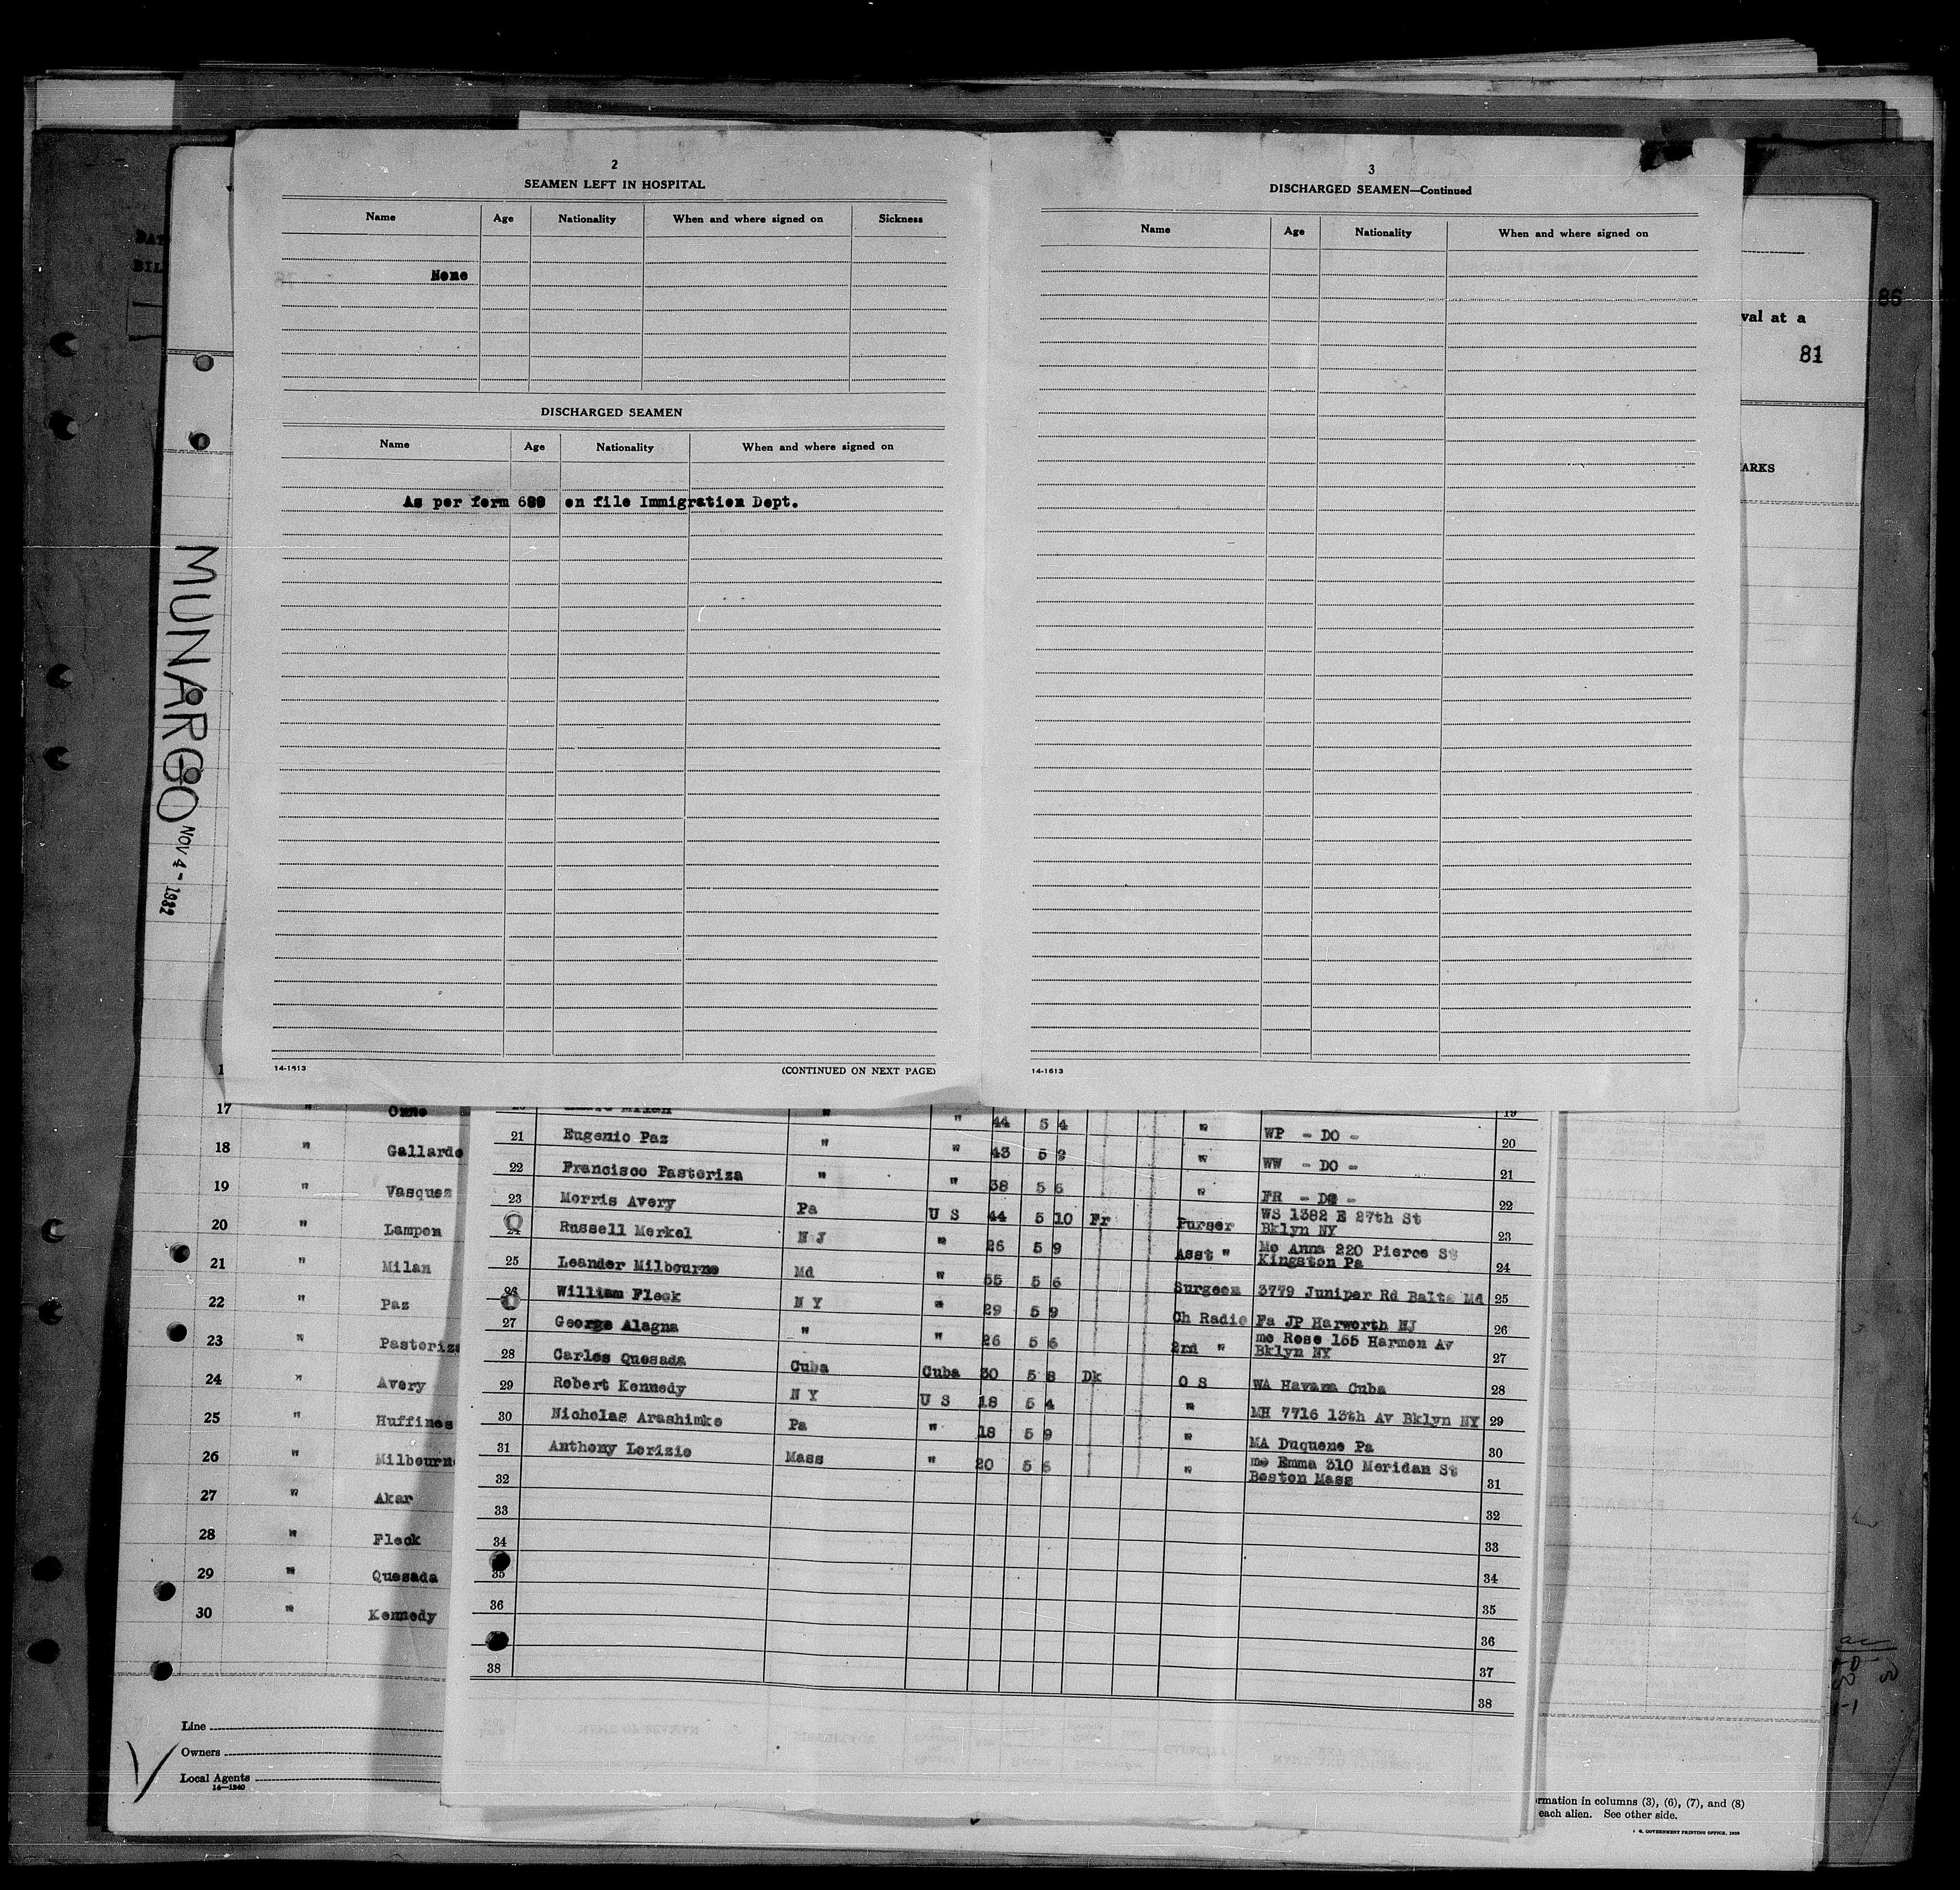 2
SEAMEN LEFT IN HOSPITAL
Name Age Nationality When and where signed on Sickness
None
DISCHARGED SEAMEN
Name Age Nationality When and where signed on
As per form 689 on file Immigration Dept.
14-1613 (CONTINUED ON NEXT PAGE)
3
DISCHARGED SEAMEN—Continued
Name Age Nationality When and where signed on
14-1613
86
val at a
81
ARKS
MUNARGO
NOV 4 - 1932
17 "
18 " Gallardo
19 " Vasquez
20 " Lampon
21 " Milan
22 " Paz
23 " Pasteriza
24 " Avery
25 " Huffines
26 " Milbourn
27 " Akar
28 " Fleck
29 " Quesada
30 " Kennedy
Line
Owners
Local Agents
14—1240
" " 44 5 4 " WP - DO - 20
21 Eugenio Paz " " 43 5 " WW - DO - 21
22 Francisco Pasteriza " " 38 5 6 " FR - DO - 22
23 Morris Avery Pa U S 44 5 10 Fr Purser WS 1382 E 27th St
Bklyn NY 23
24 Russell Merkel N J " 26 5 9 Asst " Mo Anna 220 Pierce St
Kingston Pa 24
25 Leander Milbourne Md " 55 5 6 Surgeon 3779 Juniper Rd Balto Md 25
26 William Fleck N Y " 29 5 9 Ch Radio Fa JP Harworth NJ 26
27 George Alagna " " 26 5 6 2nd " mo Rose 155 Harmon Av
Bklyn NY 27
28 Carlos Quesada Cuba Cuba 30 5 8 Dk O S WA Havana Cuba 28
29 Robert Kennedy N Y U S 18 5 4 " MH 7716 13th Av Bklyn NY 29
30 Nicholas Arashimke Pa " 18 5 9 " MA Duquene Pa 30
31 Anthony Lorizio Mass " 20 5 5 " mo Emma 310 Meridan St
Boston Mass 31
32 32
33 33
34 34
35 35
36 36
37
38 38
rmation in columns (3), (6), (7), and (8)
each alien. See other side.
GOVERNMENT PRINTING OFFICE, 1929